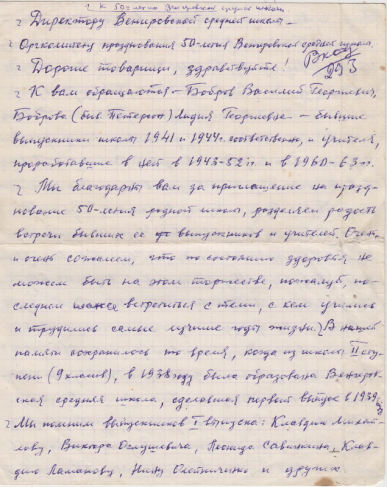 к 50-летию Вознеровской средней школы
Директору Вознеровской средней школы.
Оргкомитету празднования 50-летия Вознеровской средней школы.
Дорогие товарищи, здравствуйте!
Вход
293
К вам обращаются – Бобров Василий Георгиевич,
Боброва (быв. Петерсон) Лидия Георгиевна – бывшие
выпускники школы 1941 и 1944 г. соответственно, и учителя,
проработавшие в ней в 1943-52 гг и в 1960-63 гг.
Мы благодарны вам за приглашение на празд-
нование 50-летия родной школы, разделяем радость
встречи бывших её выпускников и учителей. Очень
и очень сожалеем, что по состоянию здоровья не
можем быть на этом торжестве, пожалуй, по-
следнем шансе встретиться с теми, с кем учились
и трудились самые лучшие годы жизни. В нашей
памяти сохранилось то время, когда из школы II сту-
пени (9 классов), в 1938 году была образована
ская средняя школа, сделавшая первый выпуск в 1939
Мы помним выпускников I выпуска: Клавдию Михай-
лову, Виктора Леонида Савицкина, Клав-
дию Ламанову, Нину Олейниченко и других